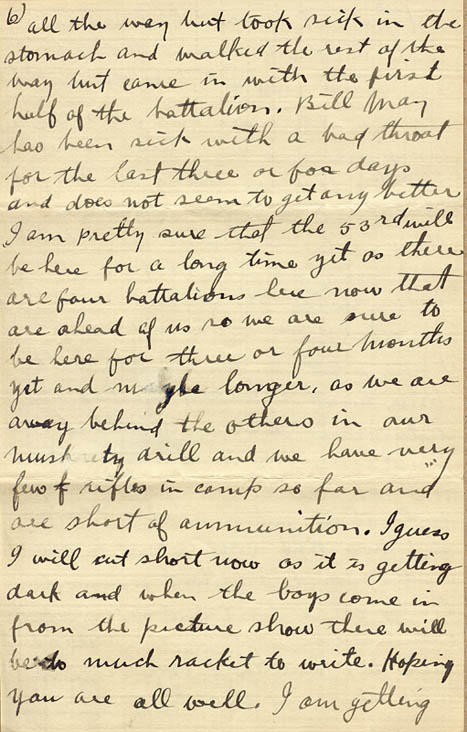 6) all the way but took sick in the
stomach and walked the rest of the
way but came in with the first
half of the battalion. Bill May
has been sick with a bad throat
for the last three or four days
and does not seem to get any better
I am pretty sure that the 53rd will
be here for a long time yet as there
are four battalions here now that
are ahead of us so we are sure to
be here for three or four months
yet and maybe longer, as we are
away behind the others in our
musketry drill and we have very
few rifles in camp so far and
are short of ammunition. I guess
I will cut short now as it is getting
dark and when the boys come in
from the picture show there will
be to much racket to write. Hoping
you are all well. I am getting